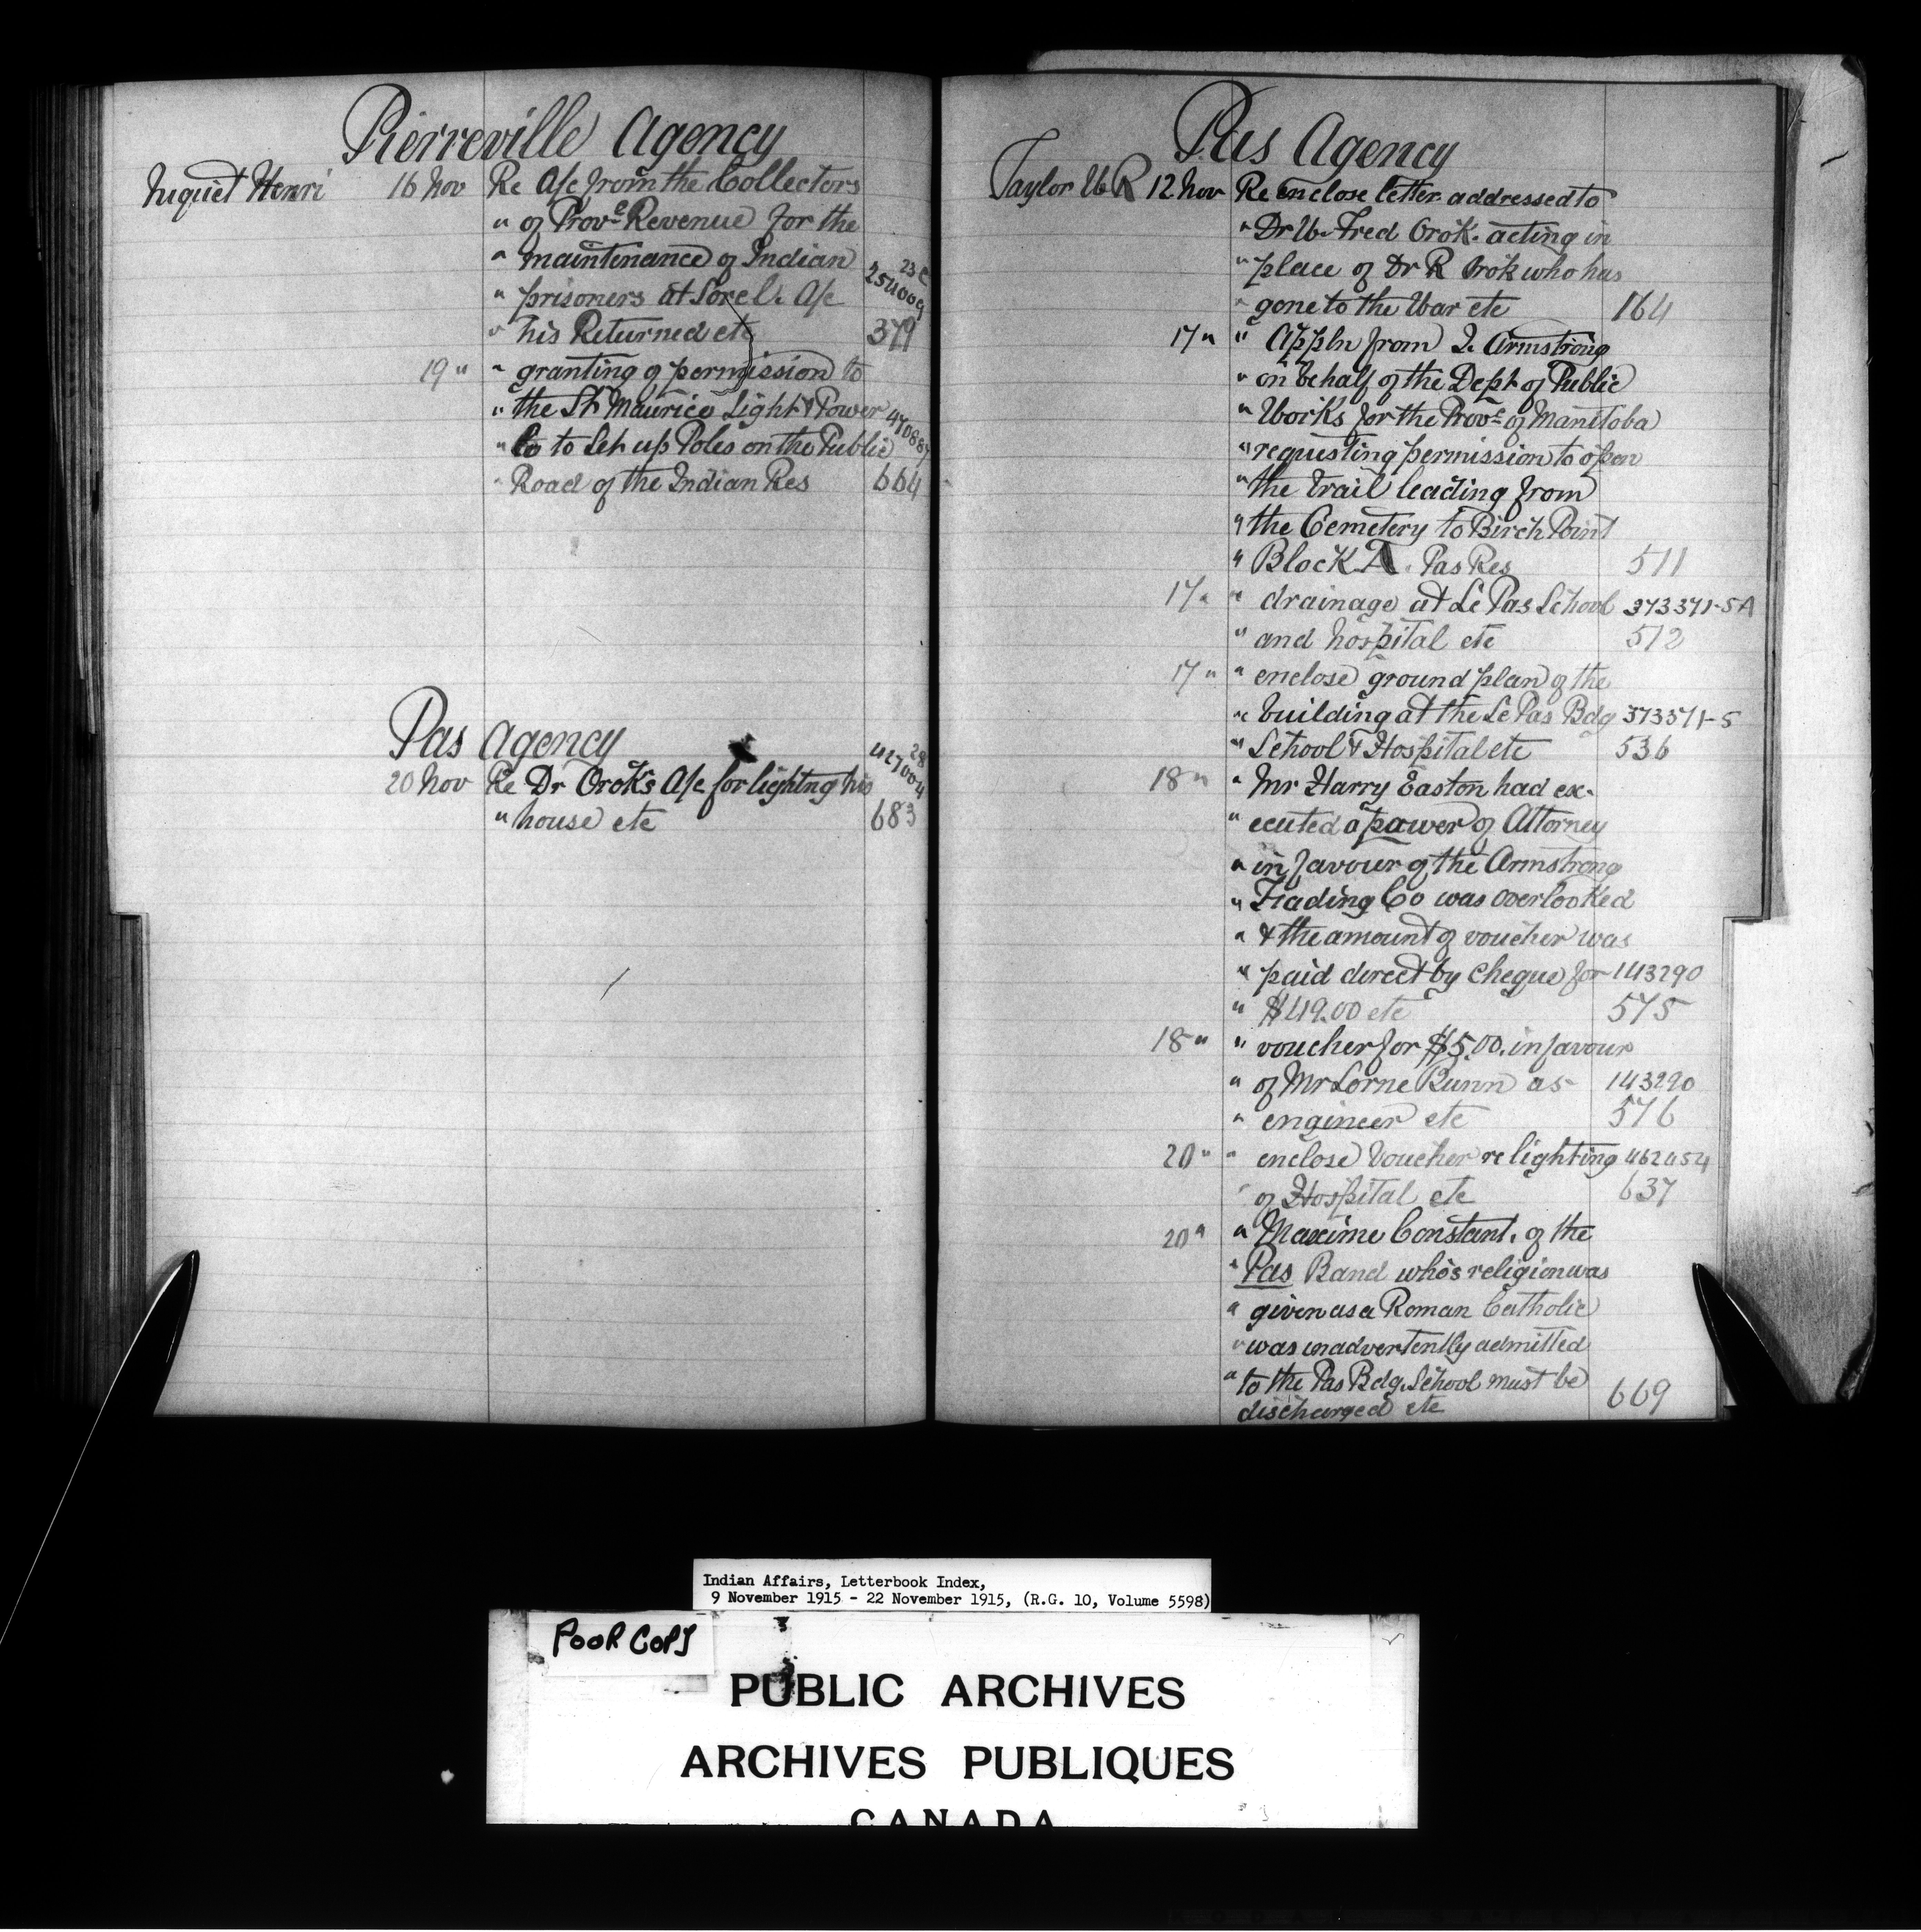 Pierreville Agency
Niquet Henri 16 Nov Re A/c from the Collectors
" of Provᵉ Revenue for the
" maintenance of Indian 23c
" prisoners at Sorel. A/c 254009
" his Returned etc 379
19 " " granting of permission to
" the St Maurice Light & Power 470887
" Co to Set up Poles on the Public
" Road of the Indian Res 664
Pas Agency
28
20 Nov Re Dr Orok's A/c for lightng his 427004
" house etc 683
Pas Agency
Taylor W R 12 Nov Re enclose letter addressed to
" Dr W. Fred Orok. acting in
" place of Dr R Orok who has
" gone to the War etc 164
17 " " Appln from J. Armstrong
" on behalf of the Dept of Public
" Works for the Provᵉ of Manitoba
" requesting permission to open
" the trail leading from
" the Cemetery to Birch Point
" Block A. Pas Res 511
17 " " drainage at Le Pas School 373371-5A
" and hospital etc 512
17 " " enclose ground plan of the
" building at the Le Pas Bdg 373571-5
" School & Hospital etc 536
18 " " Mr Harry Easton had ex-
" ecuted a power of Attorney
" in favour of the Armstrong
" Trading Co was overlooked
" & the amount of voucher was
" paid direct by cheque for 143290
" $419.00 etc 575
18 " " voucher for $5.00. in favour
" of Mr Lorne Bunn as 143290
" engineer etc 576
20 " " enclose Voucher re lighting 462454
" of Hospital etc 637
20 " " Maxime Constant. of the
" Pas Band who's religion was
" given as a Roman Catholic
" was inadvertently admitted
" to the Pas Bdg. School must be
discharged etc 669
Indian Affairs, Letterbook Index,
9 November 1915 - 22 November 1915, (R.G. 10, Volume 5598)
POOR COPY
PUBLIC ARCHIVES
ARCHIVES PUBLIQUES
CANADA